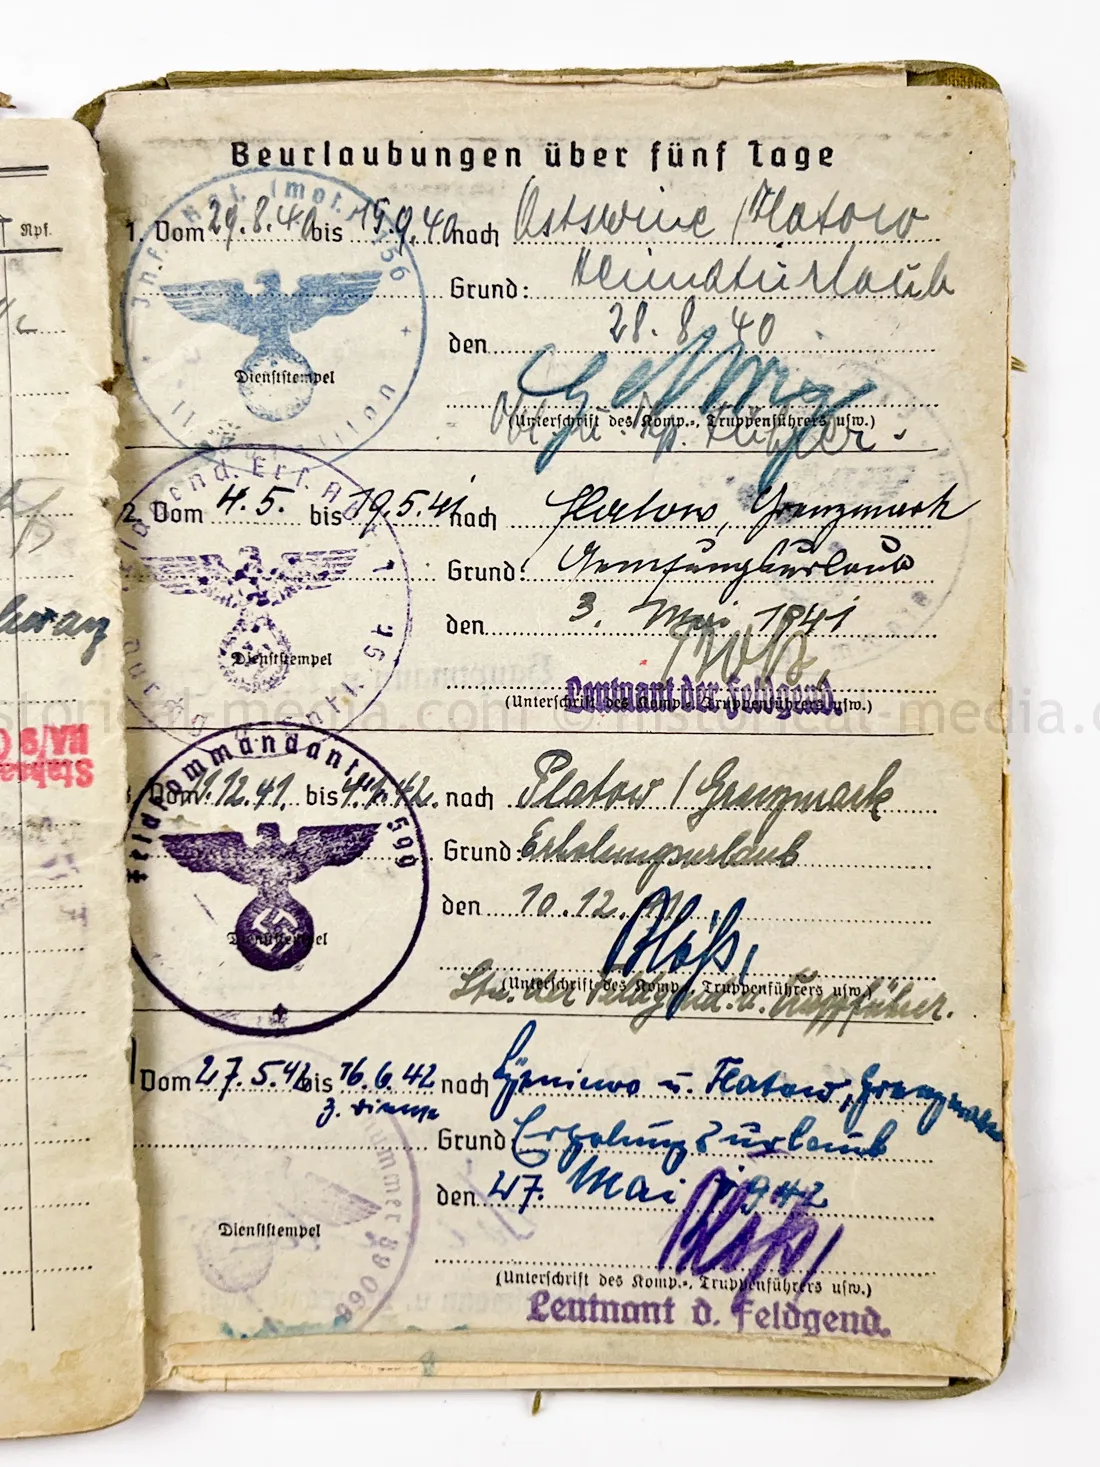 Rpf.
Beurlaubungen über fünf Tage
Inf. Rgt. (mot.) 156
1. Vom 29.8.40 bis 15.9.40 nach Ostswine / Flatow
Grund: Heimaturlaub
den 28.8.40
Dienststempel
(Unterschrift des Komp.-, Truppenführers usw.)
2. Vom 4.5. bis 19.5.41 nach Flatow, Grenzmark
Grund: Genesungsurlaub
den 3. Mai 1941
Dienststempel
Leutnant der Feldgend.
(Unterschrift des Komp.-, Truppenführers usw.)
historical-media.com
historical-media.com
Feldkommandantur 599
Vom 11.12.41. bis 4.1.42. nach Flatow / Grenzmark
Grund: Erholungsurlaub
den 10.12.41
Dienststempel
(Unterschrift des Komp.-, Truppenführers usw.)
Ltn. der Feldgend. u. Truppführer.
Vom 27.5.42 bis 16.6.42 nach u. Flatow, Grenzmark
Grund Erholungsurlaub
den 27. Mai 1942
Dienststempel
(Unterschrift des Komp.-, Truppenführers usw.)
Leutnant d. Feldgend.